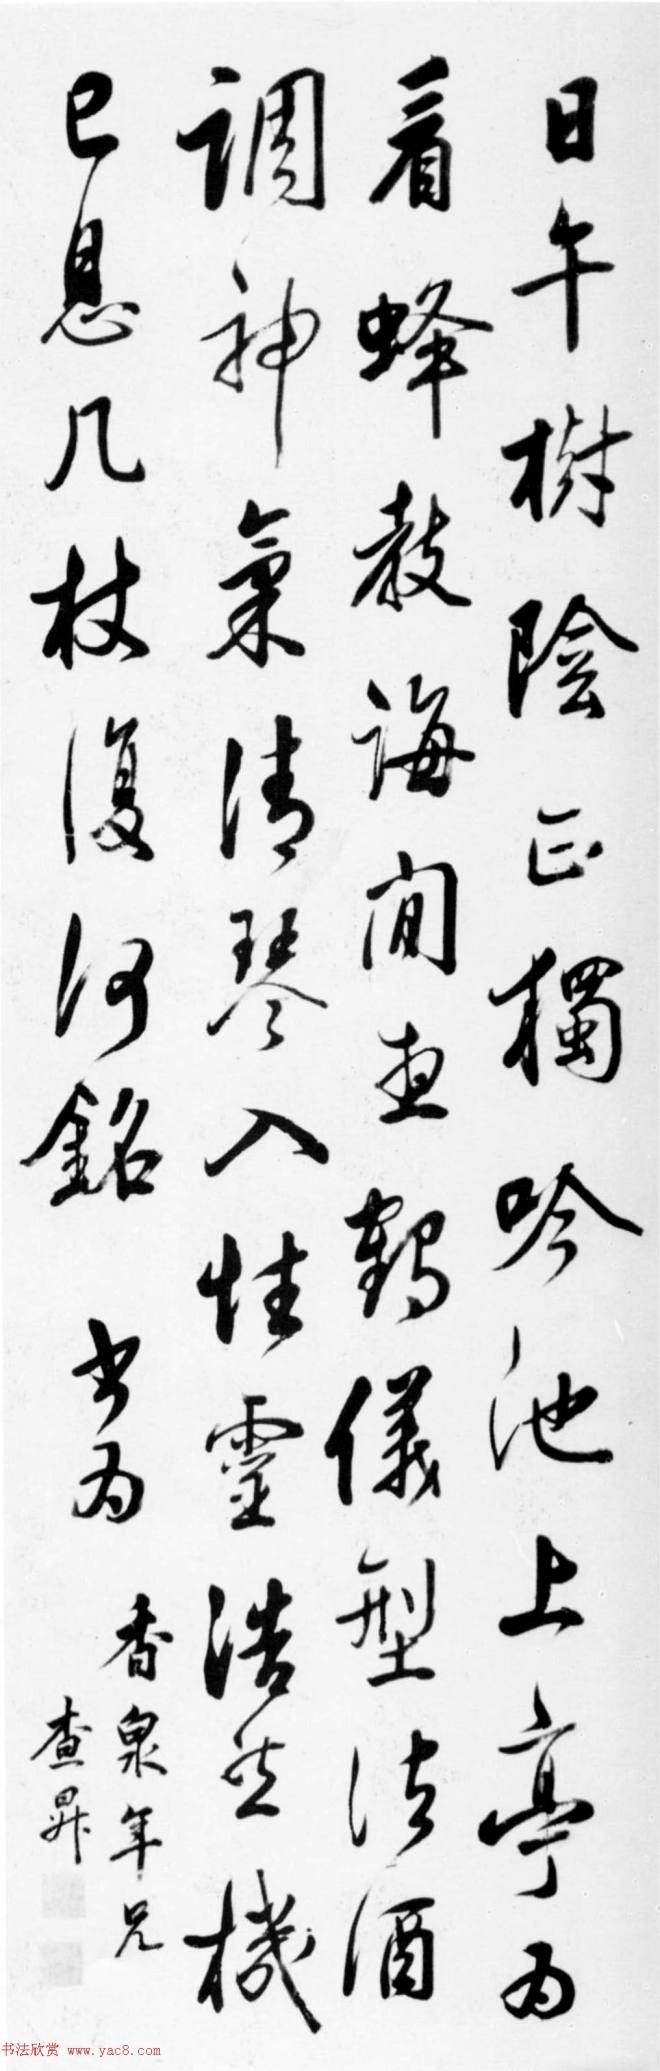 日午樹陰正獨吟池上亭為
看蜂教誨閒想鶴儀型法酒
調神氣清琴入性靈浩然機
已息几杖復何銘 書為
香泉年兄
查昇
书法欣赏 www.yac8.com